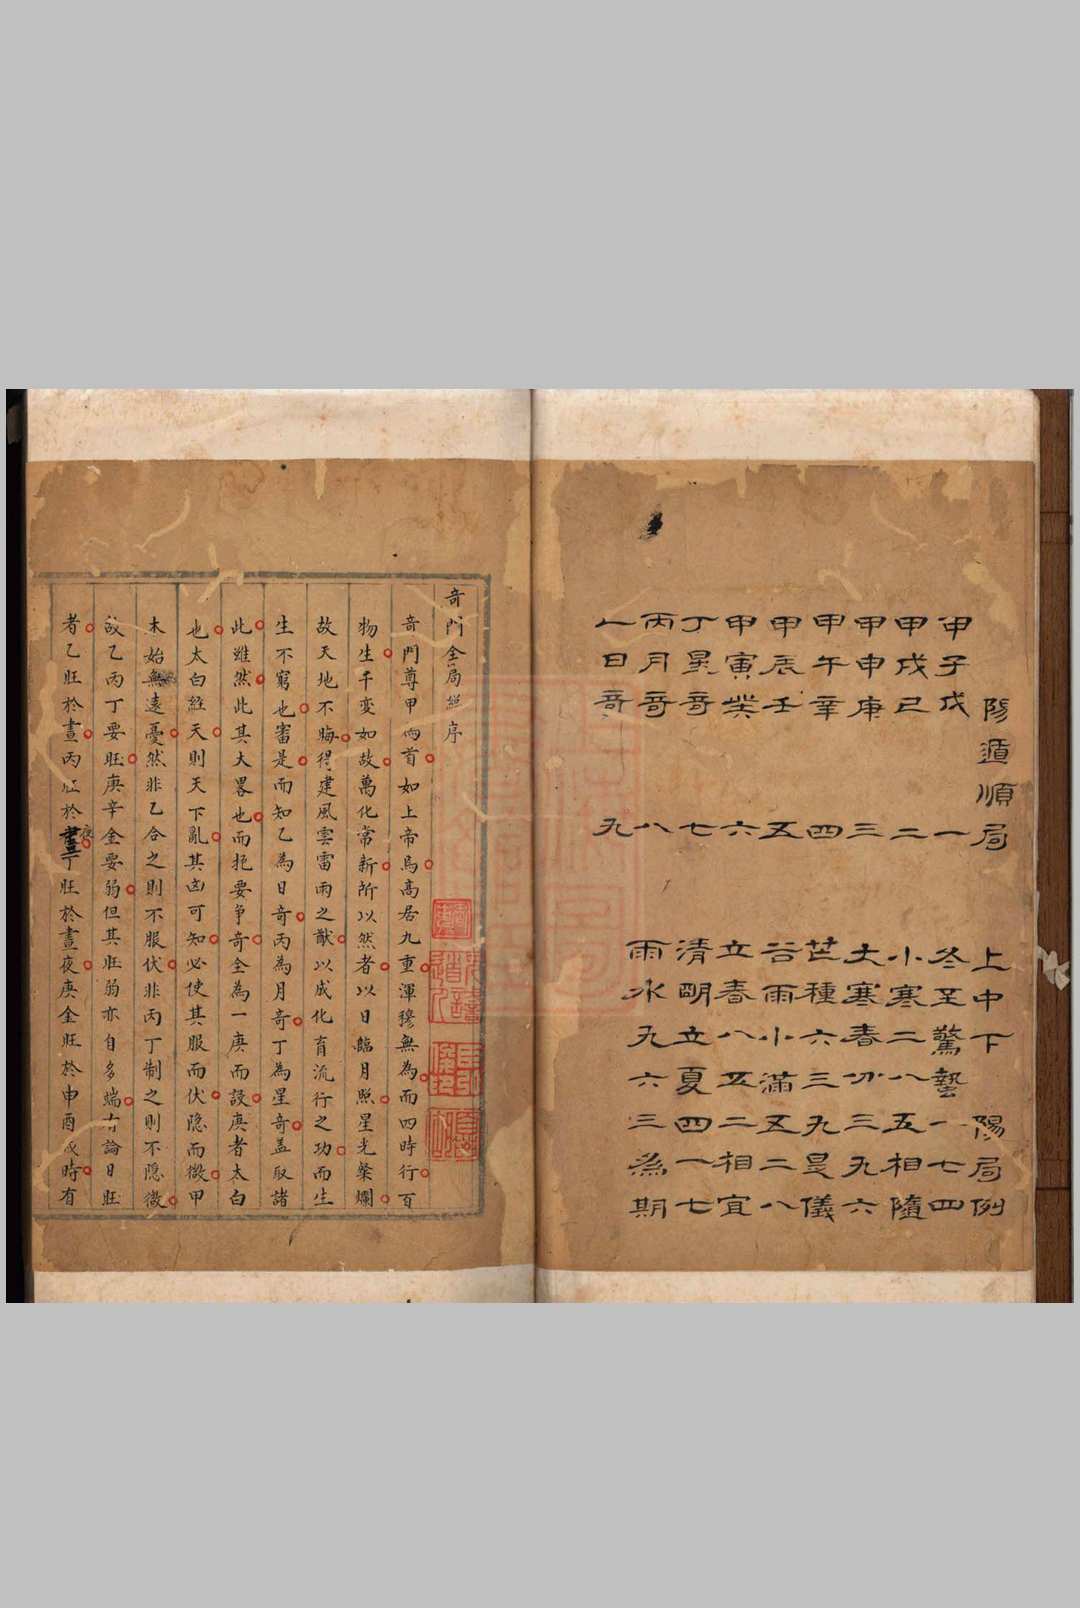 陽遁順局
甲子戊 一
甲戌己 二
甲申庚 三
甲午辛 四
甲辰壬 五
甲寅癸 六
丁星竒 七
丙月竒 八
乙日竒 九
上中下 陽局例
冬至驚蟄一七四
小寒二八五相隨
大寒春分三九六
芒種六三九是儀
谷雨小滿五二八
立春八五二相宜
清明立夏四一七
雨水九六三為期
奇門全局經序
奇門尊甲而首如上帝焉高居九重渾穆無為而四時行百
物生千変如故萬化常新所以然者以日臨月照星光燦爛
故天地不晦得建風雲雷雨之猷以成化育流行之功而生
生不窮也審是而知乙為日奇丙為月奇丁為星奇盖取諸
此雖然此其大畧也而扼要争奇全為一庚而設庚者太白
也太白経天則天下亂其凶可知必使其服而伏隐而微甲
未始無遠憂然非乙合之則不服伏非丙丁制之則不隐微
故乙丙丁要旺庚辛金要弱但其旺弱亦自多端論日旺
者乙旺於晝丙旺於夜丁旺於晝夜庚金旺於申酉戌時有